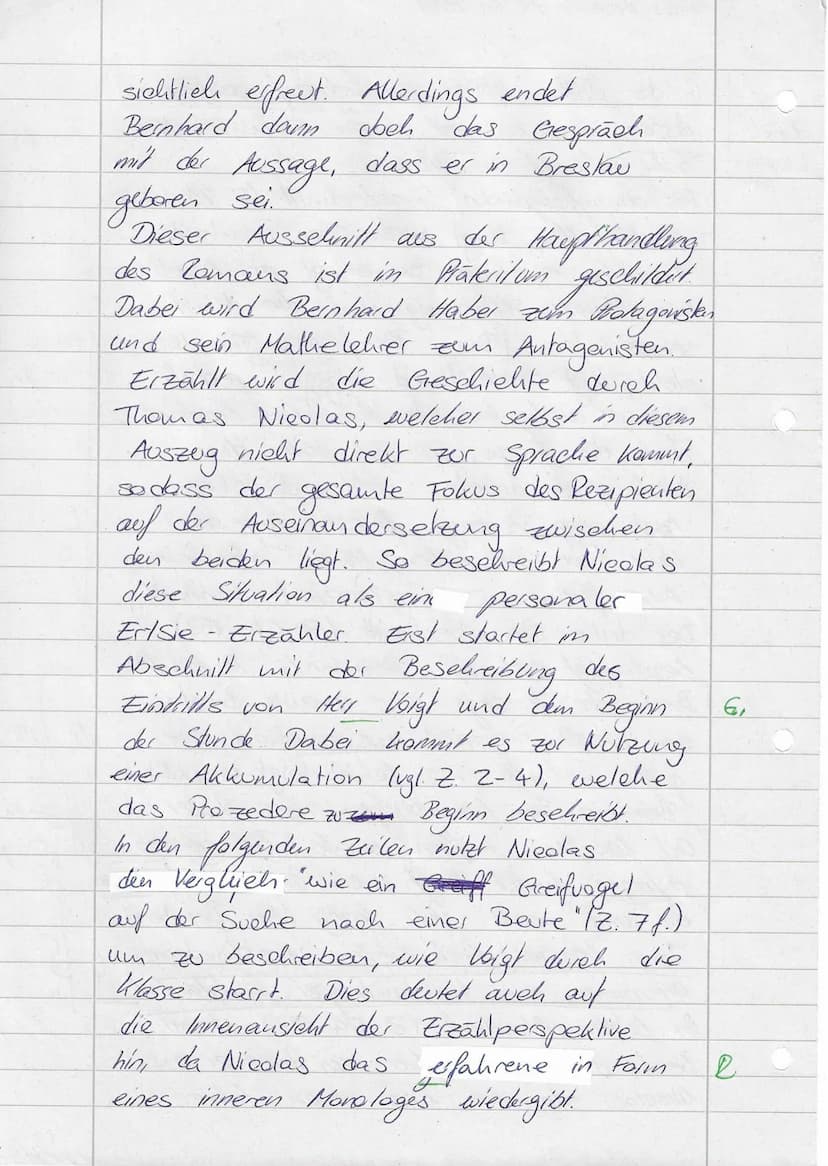 sichtlich erfreut. Allerdings endet
Bernhard dann doch das Gespräch
mit der Aussage, dass er in Breslau
geboren sei.
Dieser Ausschnitt aus der Haupthandlung
des Romans ist im Präteritum geschildert.
Dabei wird Bernhard Haber zum Protagonisten
und sein Mathelehrer zum Antagonisten.
Erzählt wird die Geschichte durch
Thomas Nicolas, welcher selbst in diesem
Auszug nicht direkt zur Sprache kommt,
sodass der gesamte Fokus des Rezipienten
auf der Auseinandersetzung zwischen
den beiden liegt. So beschreibt Nicolas
diese Situation als ein personaler
Er/Sie - Erzähler. Erst startet im
Abschnitt mit der Beschreibung des
Eintritts von Herr Voigt und dem Beginn G,
der Stunde. Dabei kommt es zur Nutzung
einer Akkumulation (vgl. Z. 2-4), welche
das Prozedere zu Beginn beschreibt.
In den folgenden Zeilen nutzt Nicolas
den Vergleich "wie ein Greifvogel
auf der Suche nach einer Beute" (Z. 7f.)
um zu beschreiben, wie Voigt durch die
Klasse starrt. Dies deutet auch auf
die Innenansicht der Erzählperspektive
hin, da Nicolas das erfahrene in Form R
eines inneren Monologes wiedergibt.